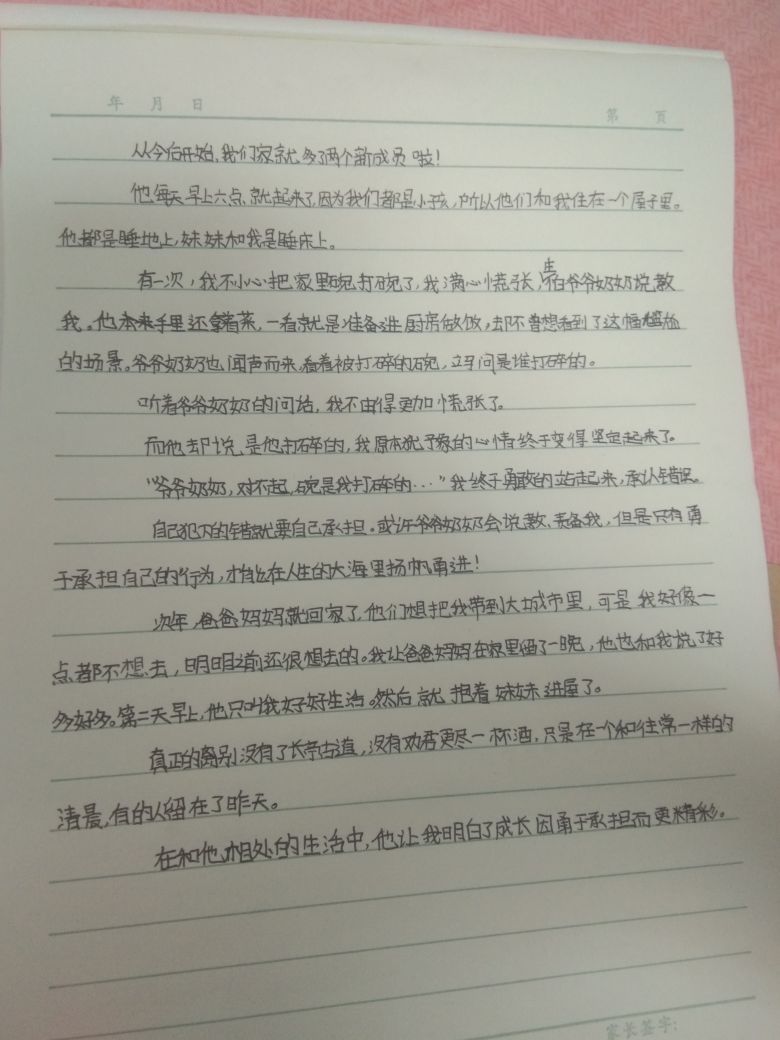 年 月 日
第 页
从今后开始,我们家就多了两个新成员啦!
他每天早上六点就起来了,因为我们都是小孩,所以他们和我住在一个屋子里。
他都是睡地上,妹妹和我是睡床上。
有一次,我不小心把家里碗打碗了,我满心慌张,生怕爷爷奶奶说教
我。他本来手里还拿着菜,一看就是准备进厨房做饭,却不曾想看到了这幅尴尬
的场景。爷爷奶奶也闻声而来,看着被打碎的碗,立马问是谁打碎的。
听着爷爷奶奶的问话,我不由得更加慌张了。
而他却说是他打碎的,我原本犹予象的心情终于变得坚定起来了。
“爷爷奶奶,对不起,碗是我打碎的...”我终于勇敢的站起来,承认错误。
自己犯下的错就要自己承担。或许爷爷奶奶会说教、责备我,但是只有勇
于承担自己的行为,才能在人生的大海里扬帆勇进!
次年,爸爸妈妈就回家了,他们想把我带到大城市里,可是我好像一
点都不想去,明明之前还很想去的。我让爸爸妈妈在家里留了一晚,他也和我说了好
多好多。第二天早上,他只叫我好好生活。然后就抱着妹妹进屋了。
真正的离别没有了长亭古道,没有劝君更尽一杯酒,只是在一个和往常一样的
清晨,有的人留在了昨天。
在和他相处的生活中,他让我明白了成长因勇于承担而更精彩。
家长签字: